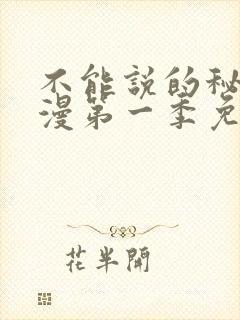 不能説的秘
漫第一季免
花半開